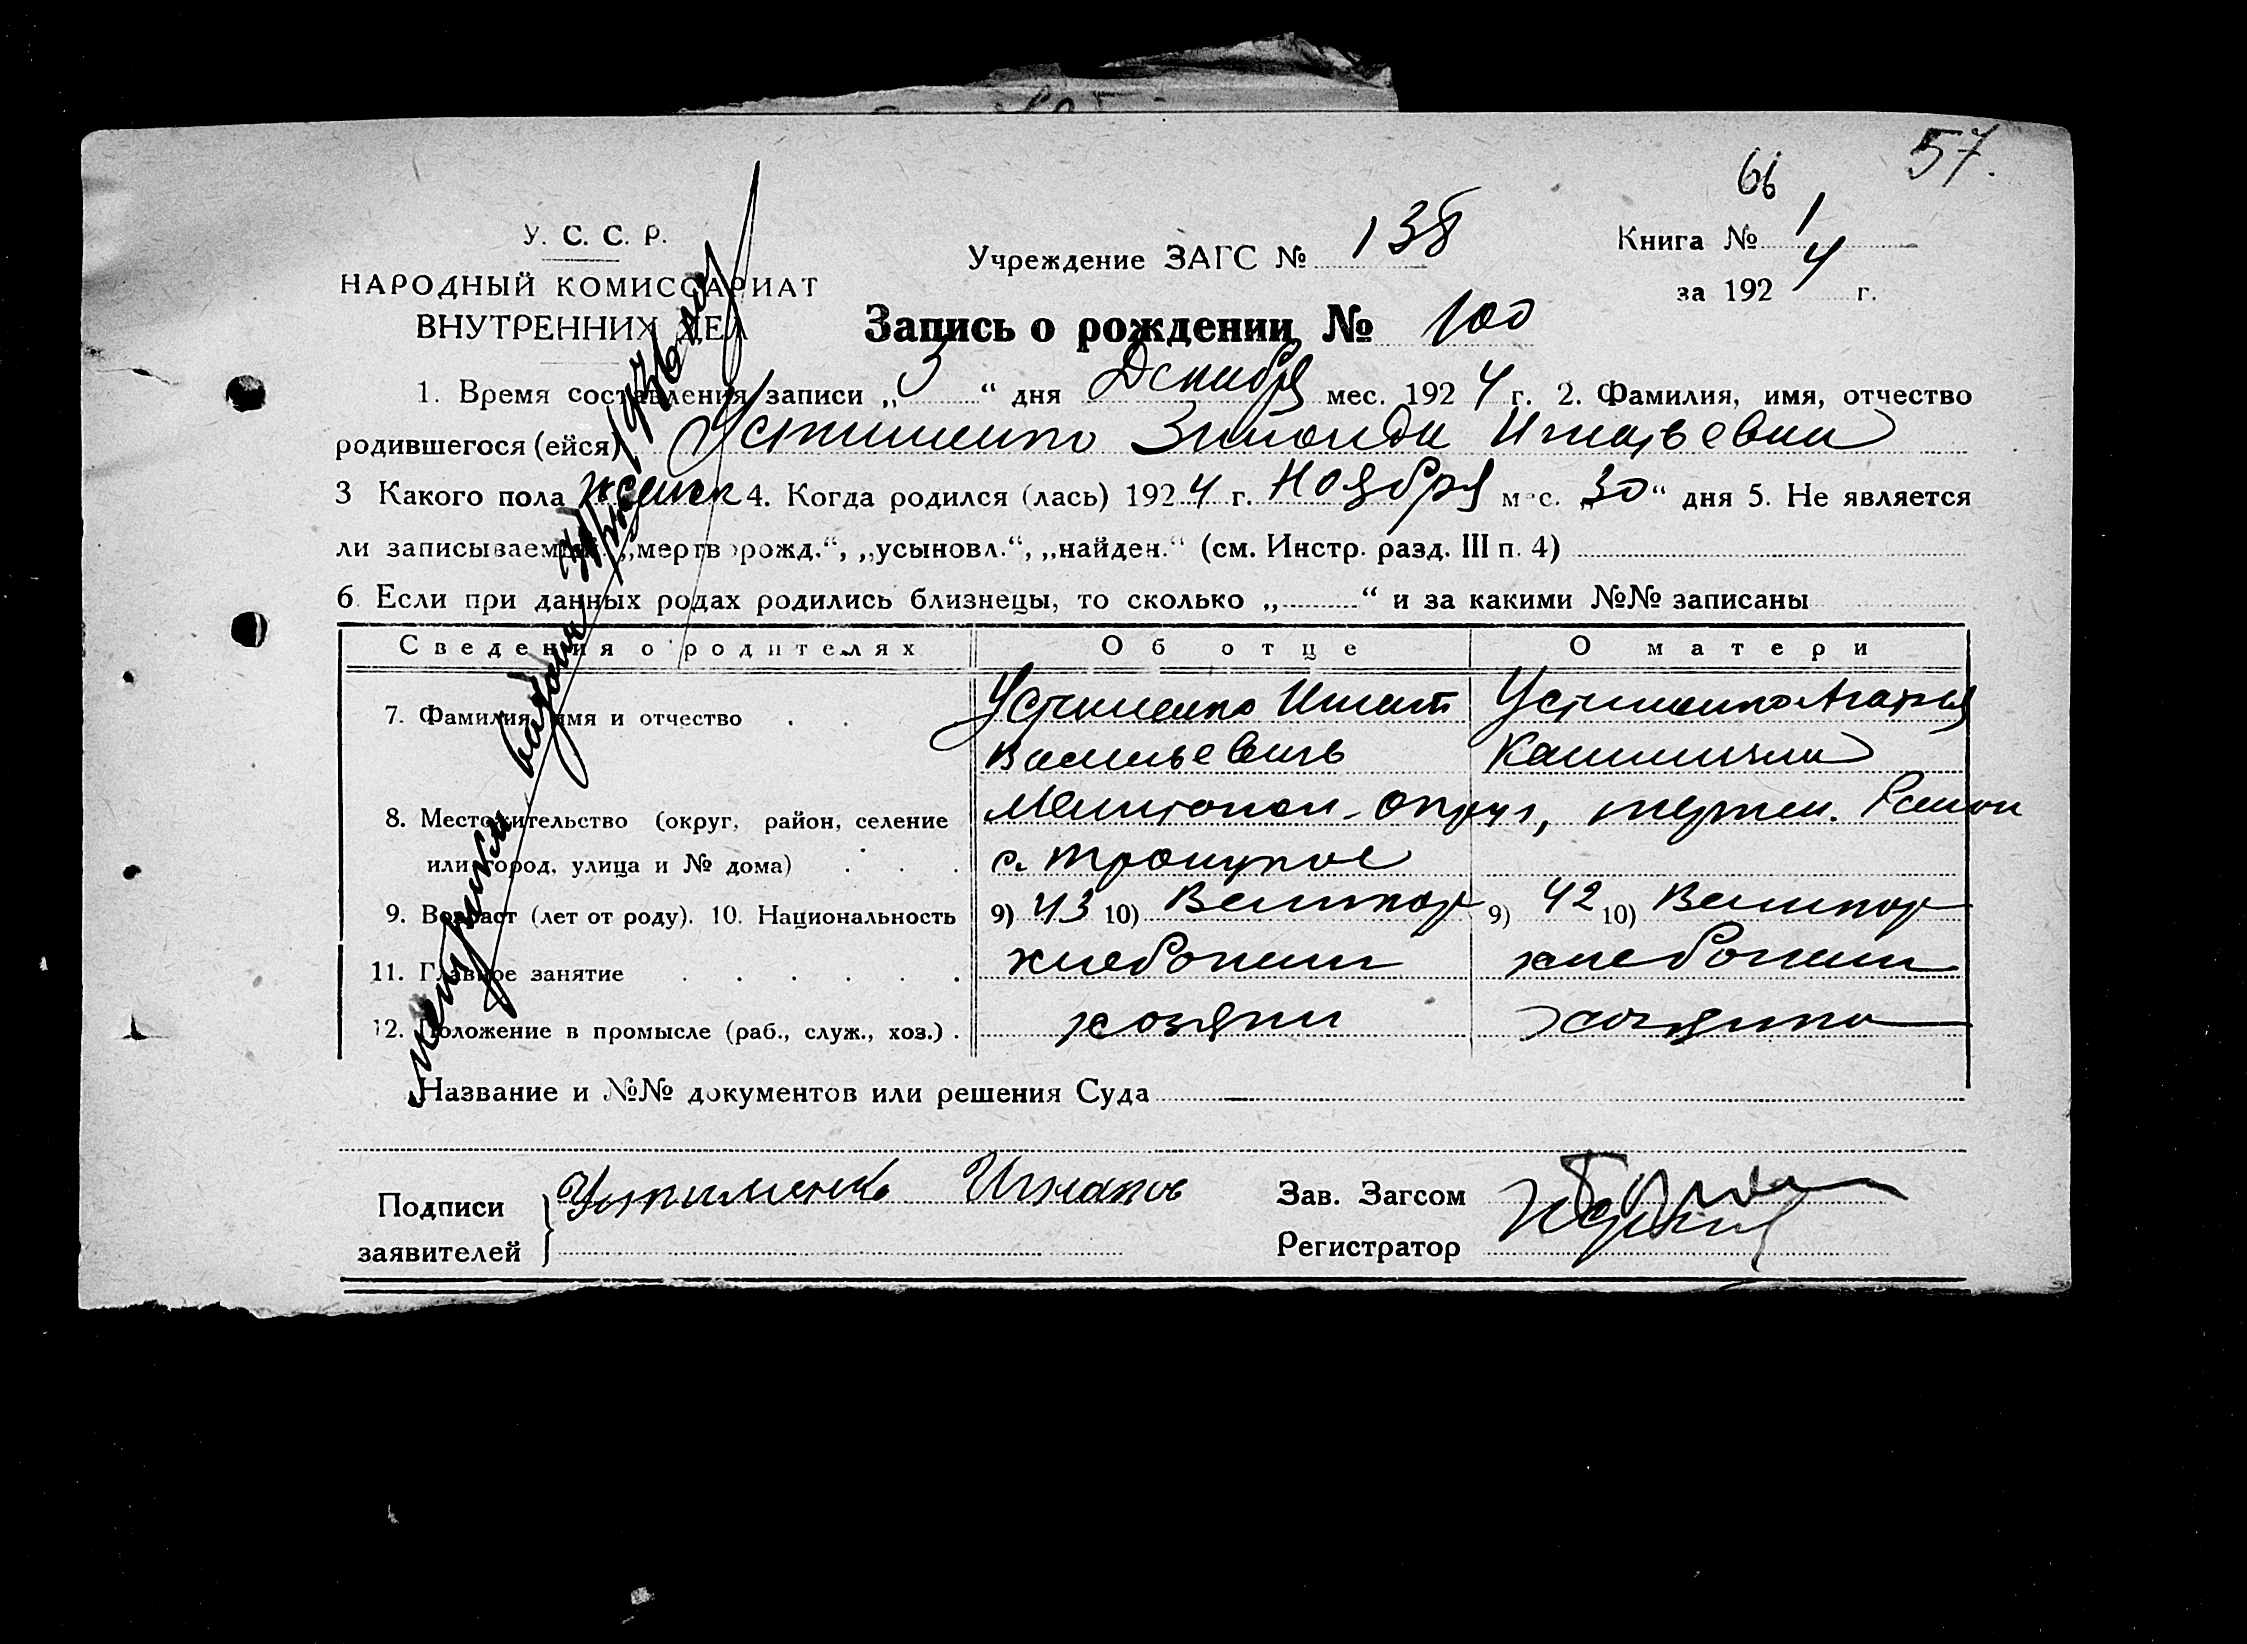 57.
66
У. С. С. Р.
НАРОДНЫЙ КОМИССАРИАТ
ВНУТРЕННИХ ДЕЛ
Учреждение ЗАГС № 138
Книга № 1
за 192 4 г.
Запись о рождении № 100
1. Время составления записи „ 3 “ дня Декабря мес. 192 4 г. 2. Фамилия, имя, отчество
родившегося (ейся) Устименко Игнатьевна
3 Какого пола женск 4. Когда родился (лась) 192 4 г. Ноября мес. „30“ дня 5. Не является
ли записываемый: „мертворожд.“, „усыновл.“, „найден.“ (см. Инстр. разд. III п. 4)
6. Если при данных родах родились близнецы, то сколько „ “ и за какими №№ записаны
Сведения о родителях Об отце О матери
7. Фамилия, имя и отчество Устименко Игнат Устименко Агафья
Васильевичь
8. Местожительство (округ, район, селение Мелитопол. округ,
или город, улица и № дома) с.
9. Возраст (лет от роду). 10. Национальность 9) 43 10) Великор 9) 42 10) Великор
11. Главное занятие хлебопаш хлебопаш
12. Положение в промысле (раб., служ., хоз.) хозяин хозяйка
Название и №№ документов или решения Суда
Подписи
заявителей
Устименко Игнатов
Зав. Загсом
Регистратор
метрика выдана 1936 года